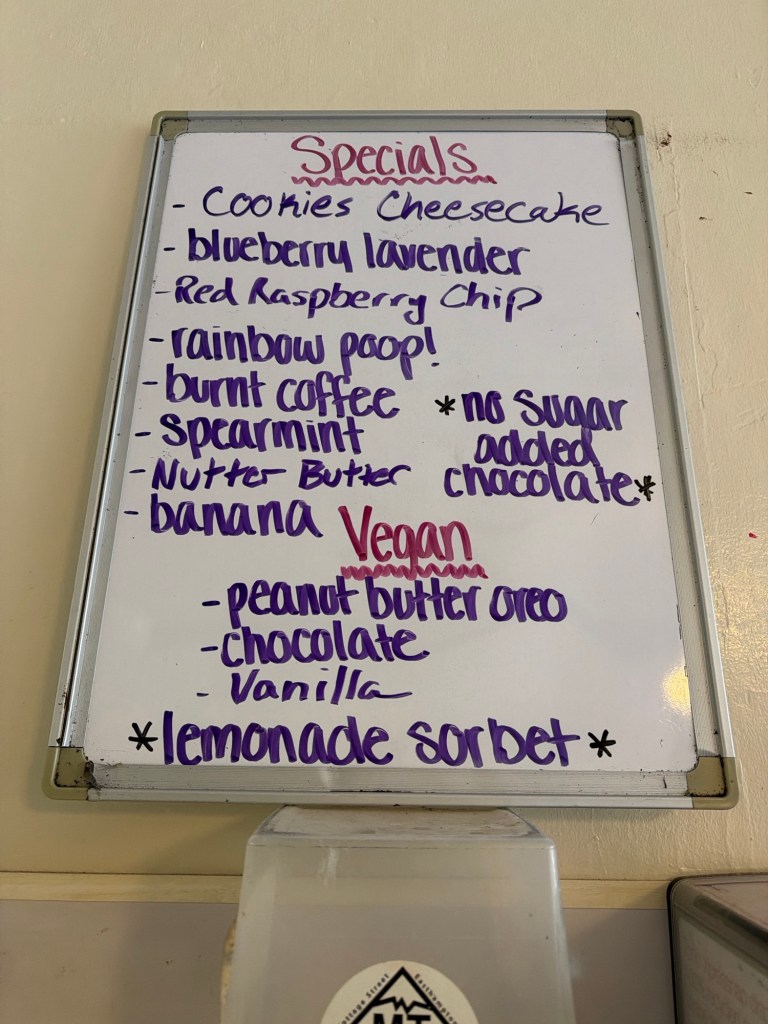 Specials
- Cookies Cheesecake
- blueberry lavender
- Red Raspberry Chip
- rainbow poop!
- burnt coffee
- spearmint
- Nutter Butter
- banana
*no sugar
added
chocolate*
Vegan
- peanut butter oreo
- chocolate
- Vanilla
*lemonade sorbet*
Cottage Street
Easthampton
MT